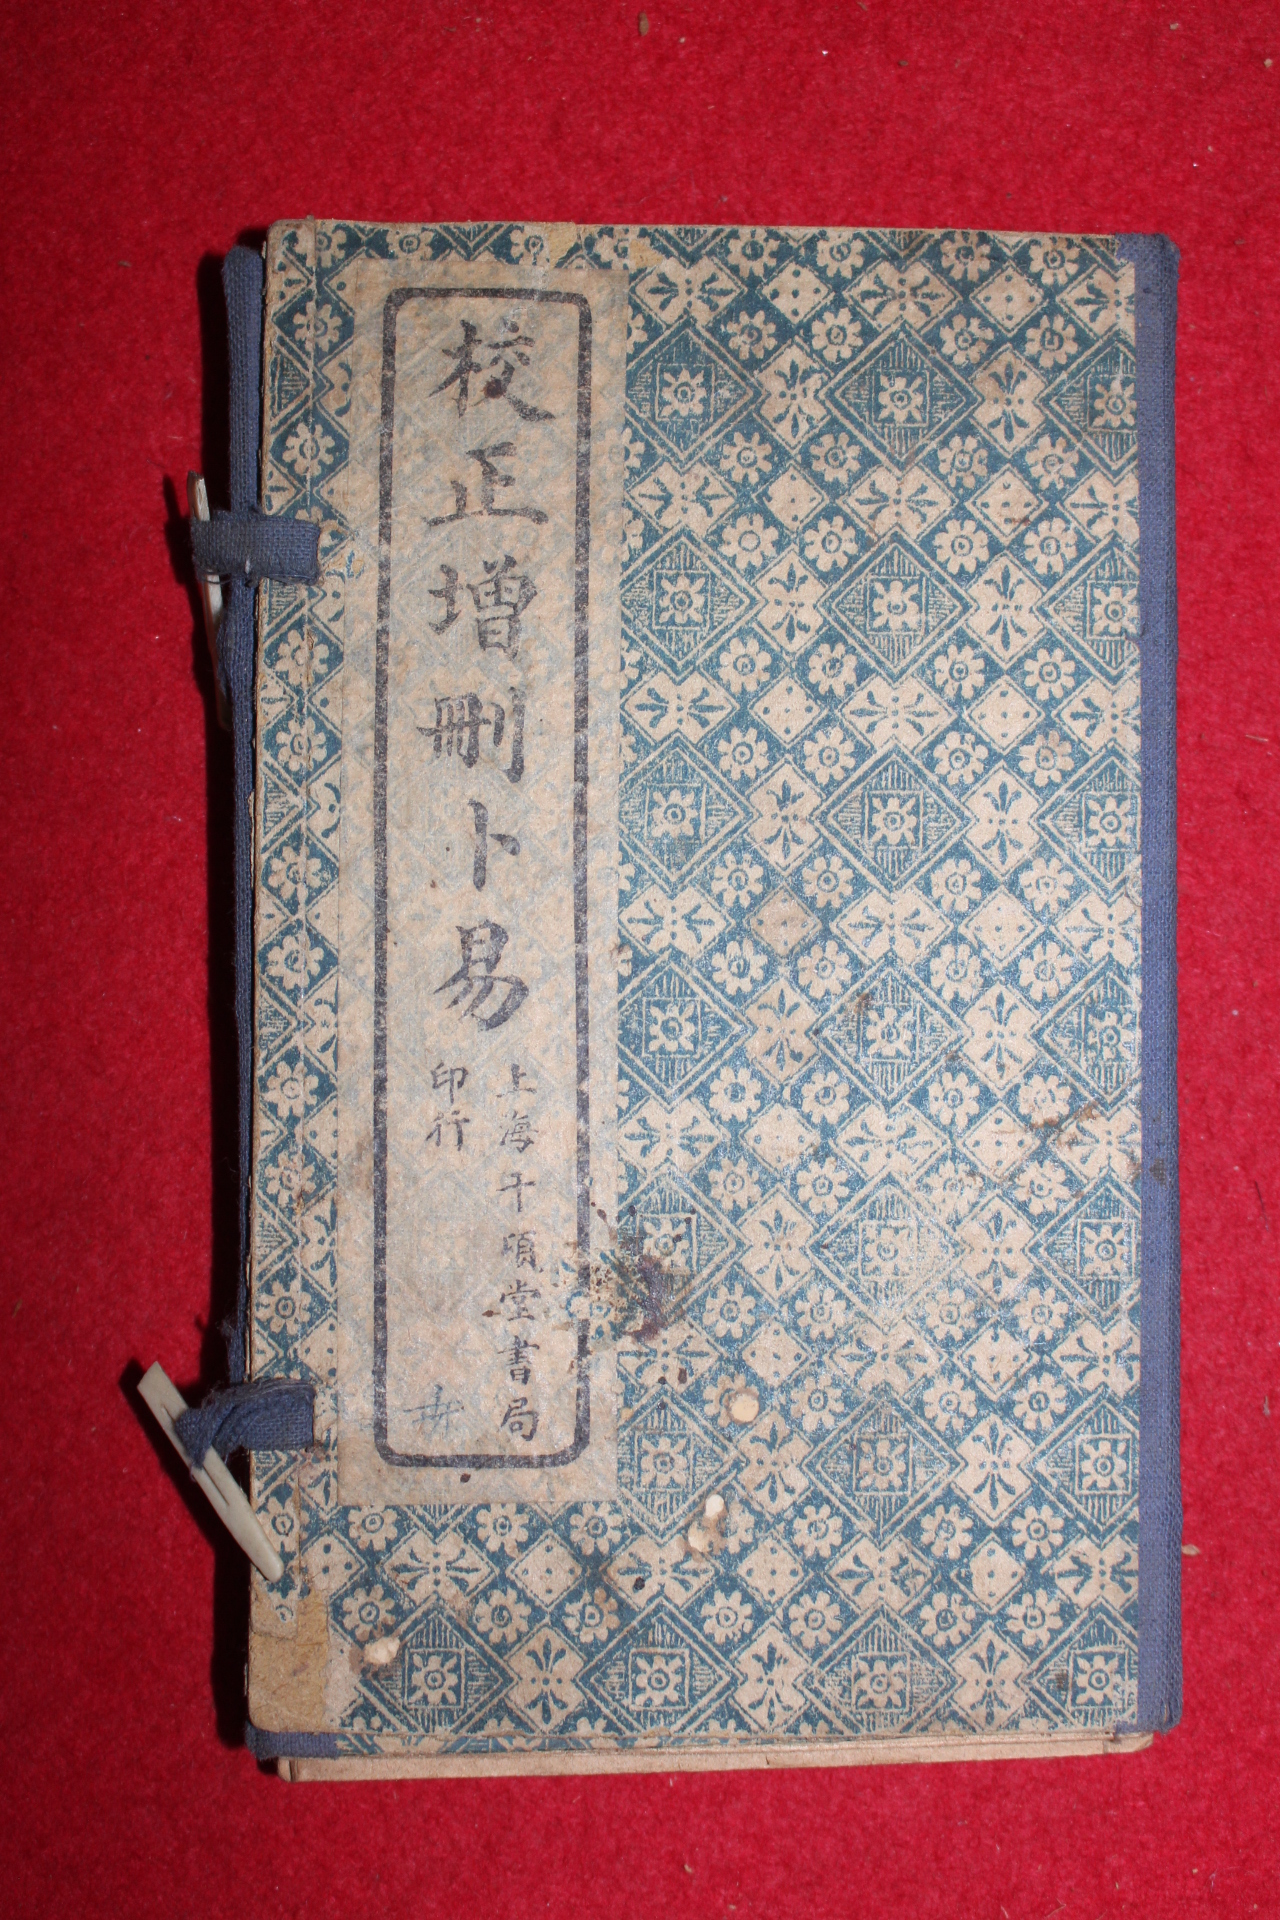 校正增刪卜易
上海千頃堂書局
印行